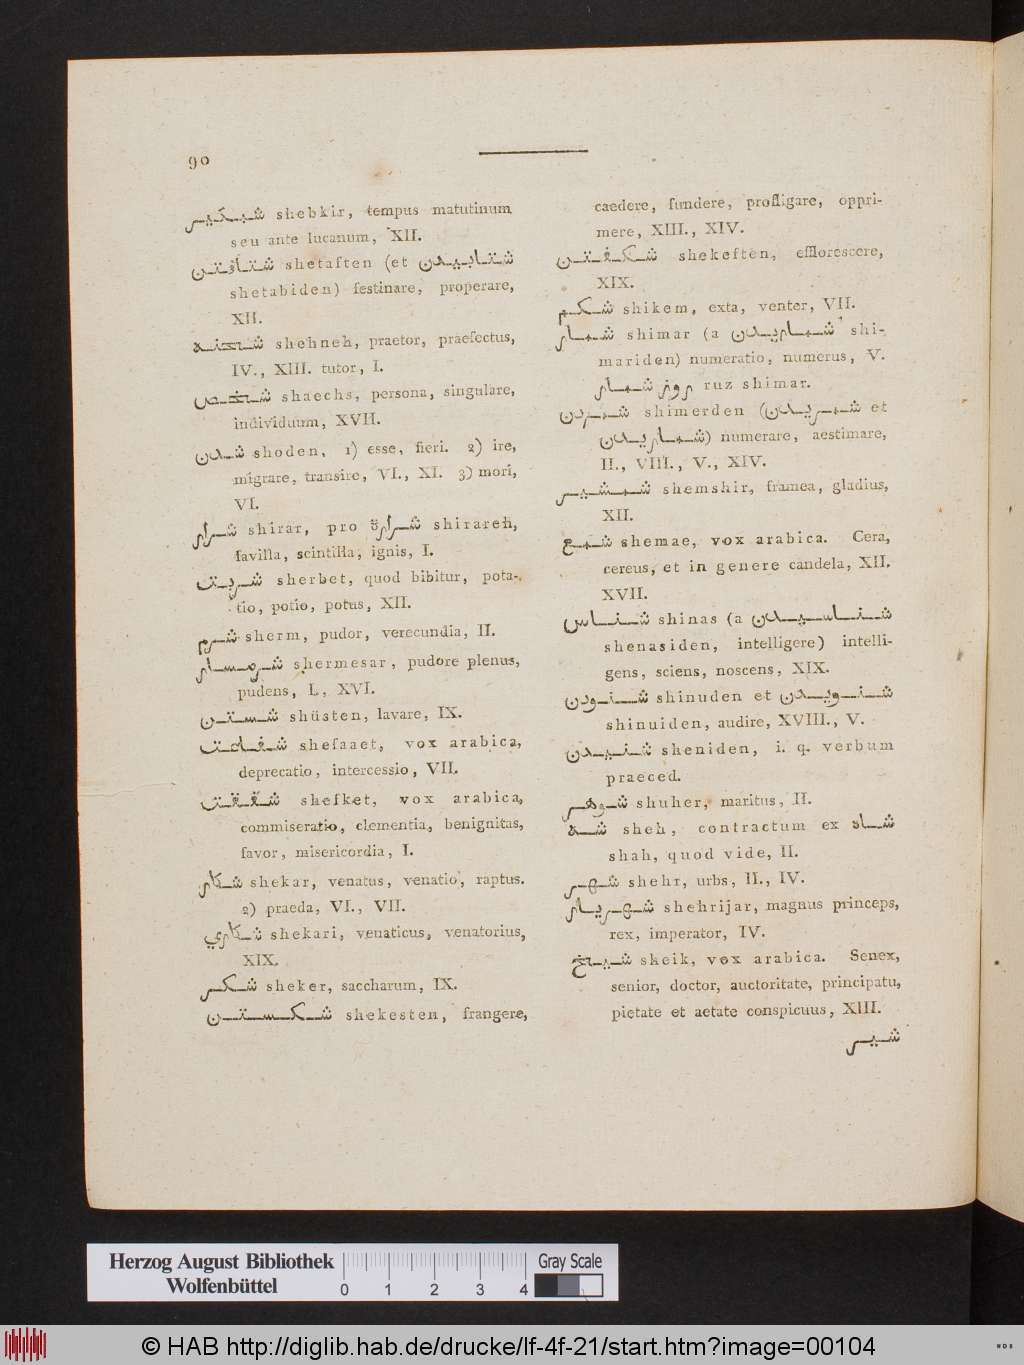 90
شبكير shebkir, tempus matutinum
seu ante lucanum, XII.
شتافتن shetaften (et شتابيدن
shetabiden) festinare, properare,
XII.
شحنه shehneh, praetor, praefectus,
IV., XIII. tutor, I.
شخص shaechs, persona, singulare,
individuum, XVII.
شدن shoden, 1) esse, fieri. 2) ire,
migrare, transire, VI., XI. 3) mori,
VI.
شرار shirar, pro شرارة shirareh,
favilla, scintilla, ignis, I.
شربت sherbet, quod bibitur, pota-
tio, potio, potus, XII.
شرم sherm, pudor, verecundia, II.
شرمسار shermesar, pudore plenus,
pudens, I., XVI.
شستن shüsten, lavare, IX.
شفاعت shefaaet, vox arabica,
deprecatio, intercessio, VII.
شفقت shefket, vox arabica,
commiseratio, clementia, benignitas,
favor, misericordia, I.
شكار shekar, venatus, venatio, raptus.
2) praeda, VI., VII.
شكاري shekari, venaticus, venatorius,
XIX.
شكر sheker, saccharum, IX.
شكستن shekesten, frangere,
caedere, fundere, profligare, oppri-
mere, XIII., XIV.
شكفتن shekeften, efflorescere,
XIX.
شكم shikem, exta, venter, VII.
شمار shimar (a شماريدن shi-
mariden) numeratio, numerus, V.
روز شمار ruz shimar.
شمردن shimerden (شمريدن et
شماريدن) numerare, aestimare,
II., VIII., V., XIV.
شمشير shemshir, framea, gladius,
XII.
شمع shemae, vox arabica. Cera,
cereus, et in genere candela, XII.
XVII.
شناس shinas (a شناسيدن
shenasiden, intelligere) intelli-
gens, sciens, noscens, XIX.
شنودن shinuden et شنويدن
shinuiden, audire, XVIII., V.
شنيدن sheniden, i. q. verbum
praeced.
شوهر shuher, maritus, II.
شه sheh, contractum ex شاه
shah, quod vide, II.
شهر shehr, urbs, II., IV.
شهريار shehrijar, magnus princeps,
rex, imperator, IV.
شيخ skeik, vox arabica. Senex,
senior, doctor, auctoritate, principatu,
pietate et aetate conspicuus, XIII.
شير
Herzog August Bibliothek
Wolfenbüttel
0 1 2 3 4
Gray Scale
© HAB http://diglib.hab.de/drucke/lf-4f-21/start.htm?image=00104